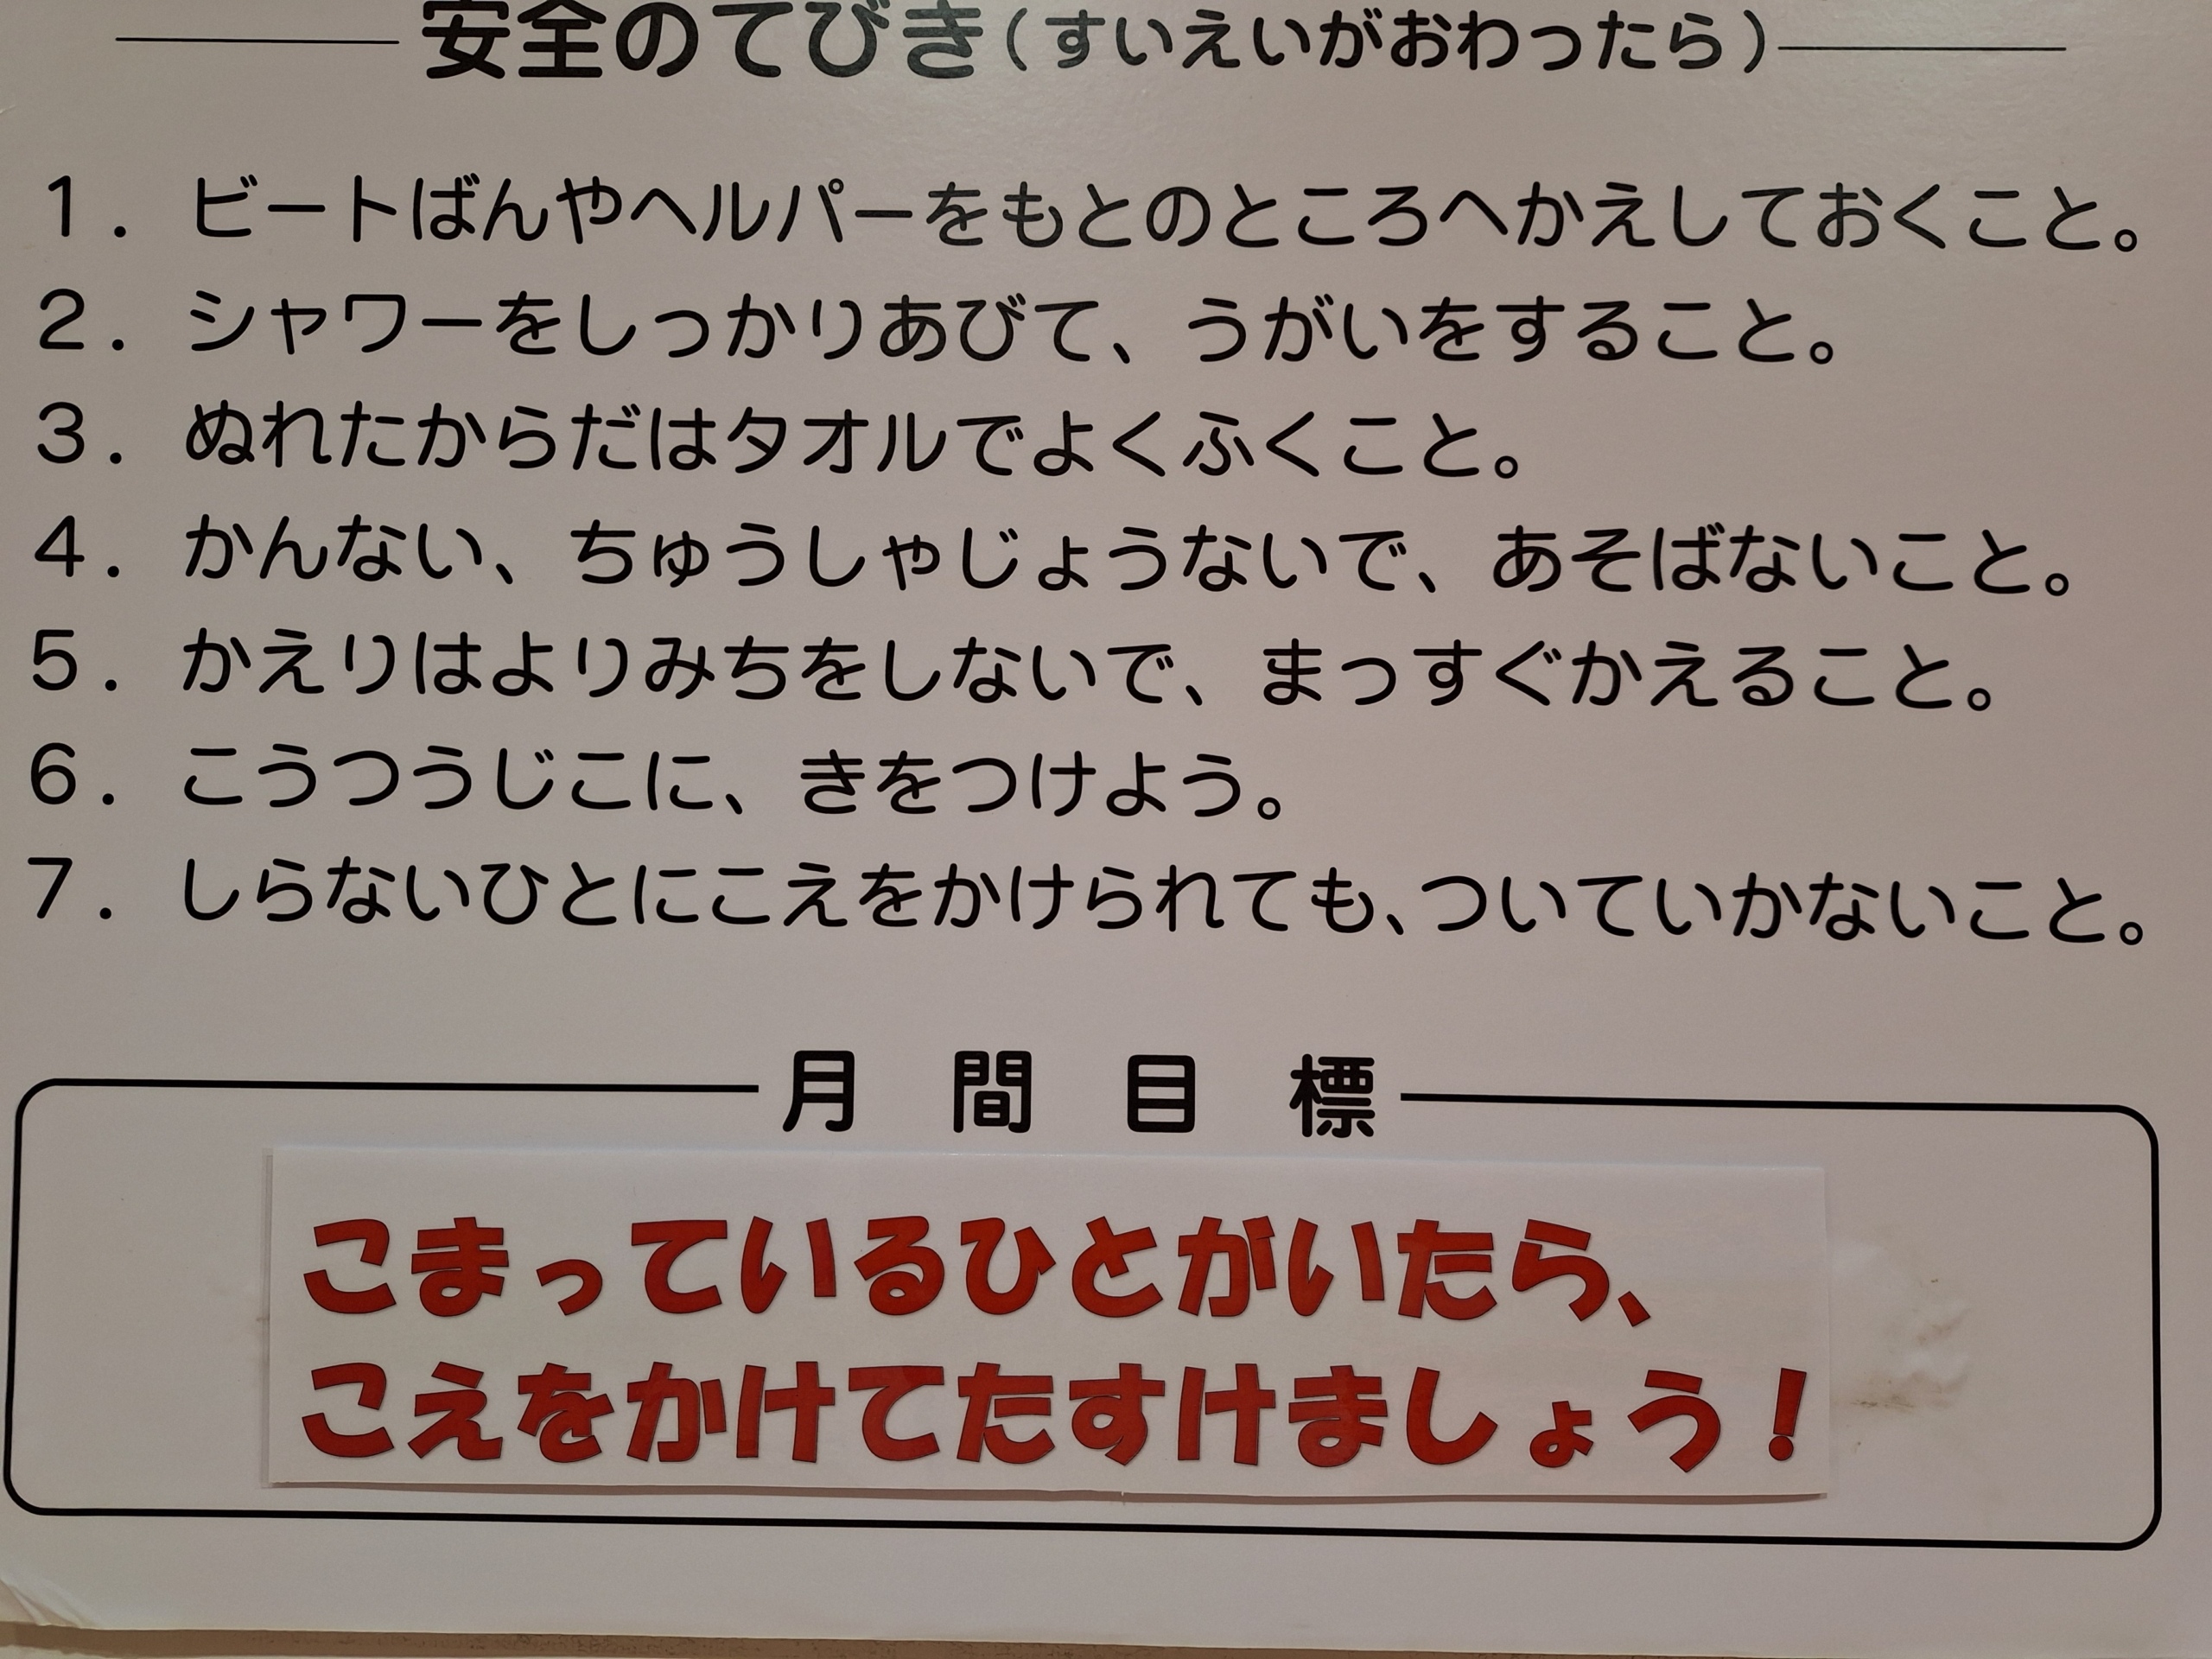 安全のてびき(すいえいがおわったら)
1. ビートばんやヘルパーをもとのところへかえしておくこと。
2. シャワーをしっかりあびて、うがいをすること。
3. ぬれたからだはタオルでよくふくこと。
4. かんない、ちゅうしゃじょうないで、あそばないこと。
5. かえりはよりみちをしないで、まっすぐかえること。
6. こうつうじこに、きをつけよう。
7. しらないひとにこえをかけられても、ついていかないこと。
月間目標
こまっているひとがいたら、
こえをかけてたすけましょう!